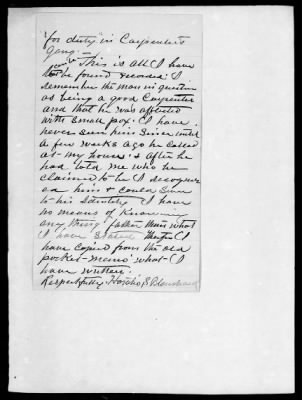 "for duty" in Carpenter's
Gang.—
This is all I have
to be found recorded. I
remember the man in question
as being a good Carpenter
and that he was afflicted
with small pox. I have
never seen him since until
a few weeks ago he called
at my house. & after he
had told me who he
claimed to be I recogniz
ed him & could swear
to his Identity. I have
no means of knowing
any thing further than what
I have stated. I
have copied from the old
pocket-memo what I
have written.
Respectfully,